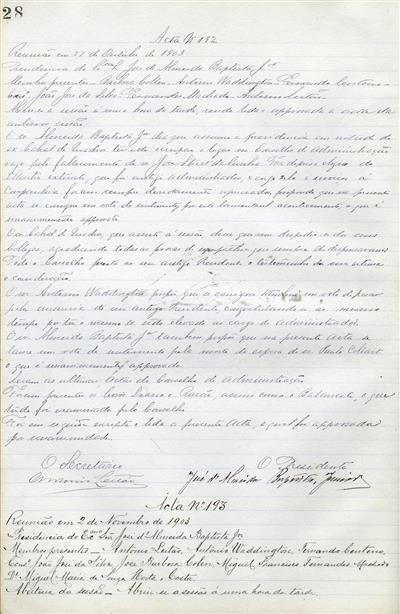 28
Acta Nº 192
Reunião em 27 de Outubro de 1903
Presidencia do Exmo Snr. José de Almeida Baptista Jor
Membros presentes Barbosa Colen, Antonio Waddington, Fernando Centeno
Consº João José da Silva, Fernandes Machado, Antonio Leitão
Abriu a sessão á uma hora da tarde, sendo lida e approvada a acta da
anterior sessão.
O sr Almeida Baptista Jor diz que assume a presidencia em virtude do
sr ter ido occupar o logar no Conselho de Administração
vago pelo fallecimento do sr José da Cunha. Faz depois o elogio do
extincto, que foi antigo Administrador e cujo zelo e á
Companhia foram sempre devidamente apreciados, propondo que na presente
acta se consigne um voto de sentimento por este lamentavel acontecimento, o que é
unanimemente approvado.
O sr, que assiste á sessão, diz que vem despedir-se dos seus
Collegas, agradecendo todas as provas de sympathia que sempre lhe dispensaram
Todo o Conselho presta ao seu antigo Presidente o testemunho da sua estima
e consideração.
O snr Antonio Waddington propõe que se consigne tambem um voto de pezar
pela ausencia do seu antigo Presidente, congratulando-se ao mesmo
tempo por ter o mesmo sr sido elevado ao cargo de Administrador.
O snr Almeida Baptista Jor tambem propõe que na presente Acta se
lance um voto de sentimento pela morte da esposa do sr Paulo
o que é unanimemente approvado.
Leram as ultimas Actas do Conselho de Administração
Foram presentes os livros Diario e Razão, assim como o Balancete, o que
tudo foi examinado pelo Conselho
Foi em seguida escripta e lida a presente Acta, a qual foi approvada
por unanimidade.
O Secretario
O Presidente
Antonio Leitão
José d'Almeida Baptista, Junior
Acta Nº 193
Reunião em 2 de Novembro de 1903
Presidencia do Exmo Snr José d'Almeida Baptista Jor
Membros presentes – Antonio Leitão, Antonio Waddington, Fernando Centeno,
Consº João José da Silva, José Barbosa Colen, Miguel Francisco Fernandes Machado
Dr Miguel Maria de Souza Horta e Costa
Abertura da sessão – Abriu-se a sessão á uma hora da tarde.